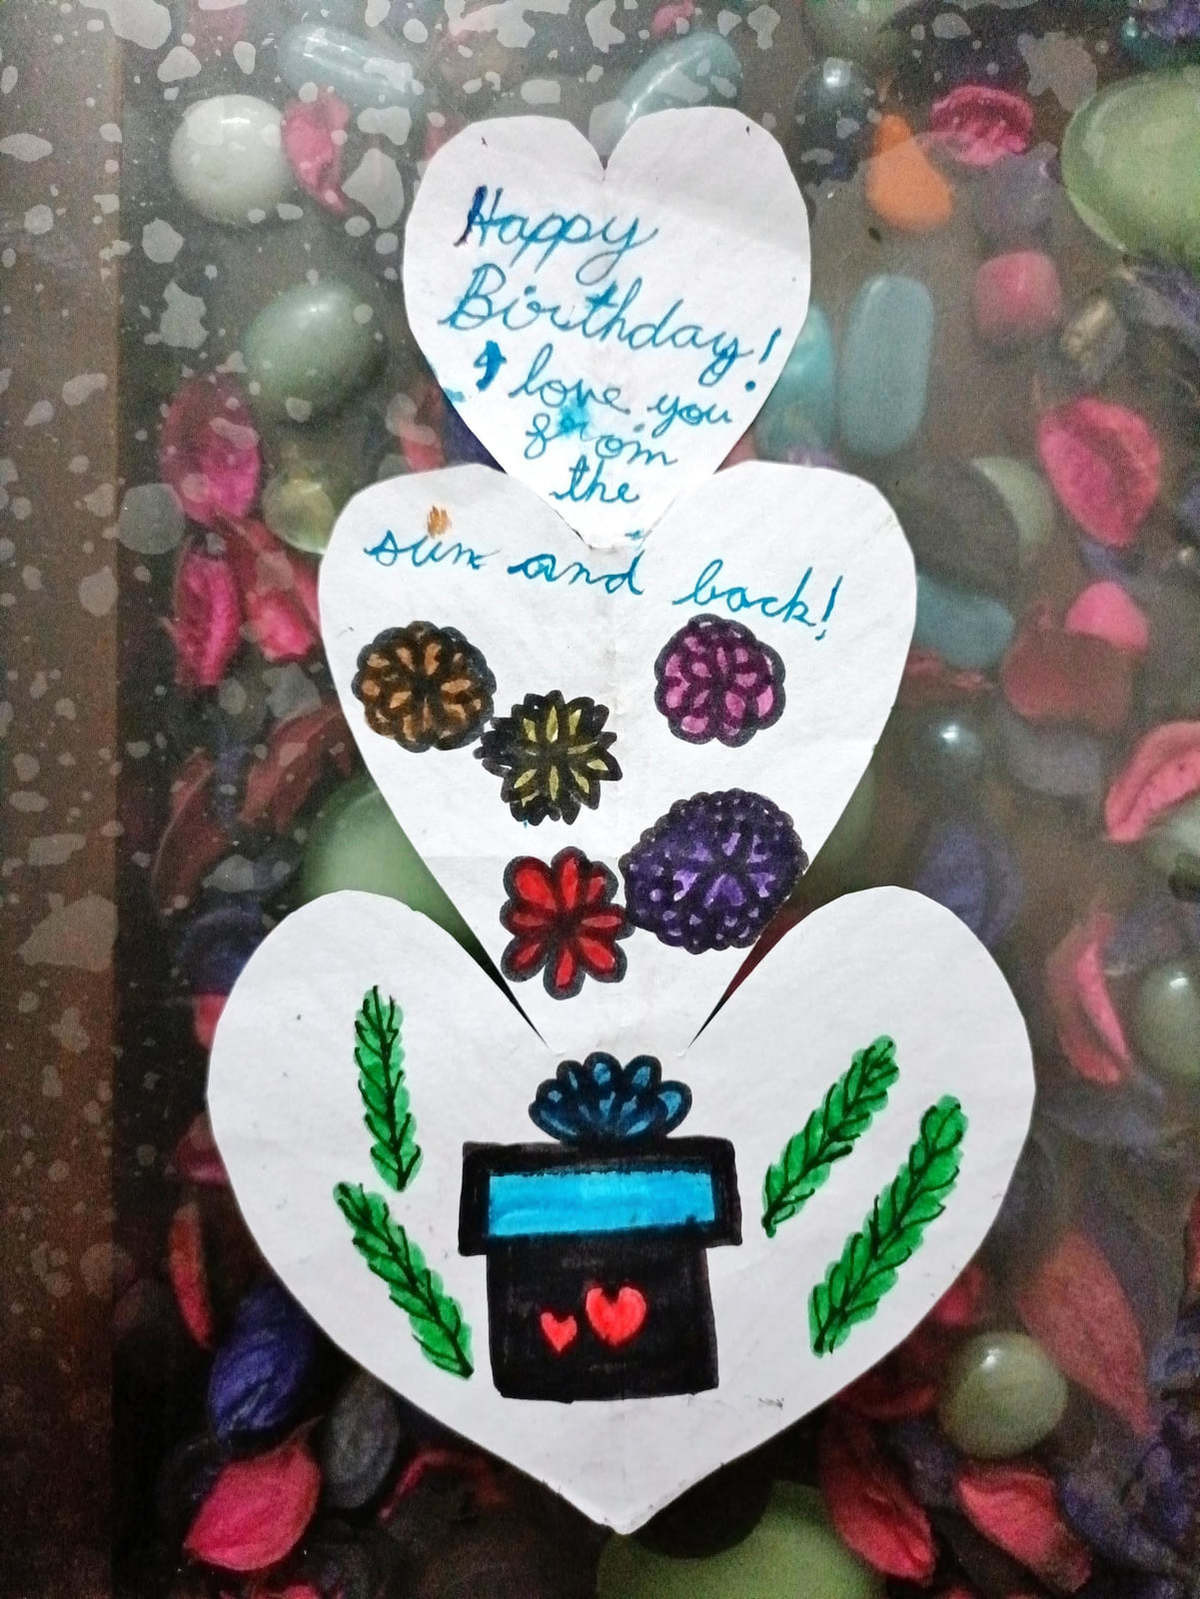 Happy
Birthday!
I love you
from
the
sun and back!